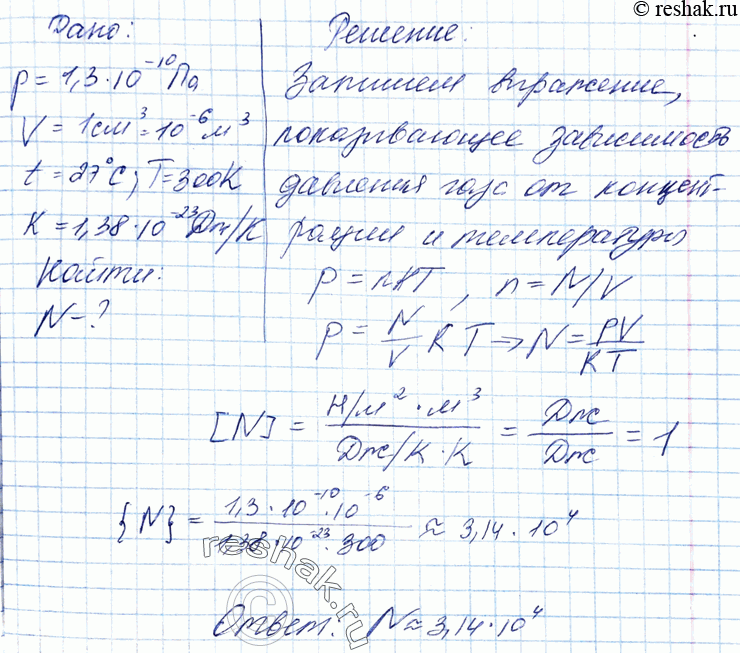 © reshak.ru
Дано:
p = 1,3·10⁻¹⁰ Па
V = 1см³ = 10⁻⁶ м³
t = 27°C; T = 300K
K = 1,38·10⁻²³ Дж/К
Найти:
N - ?
Решение:
Запишем выражение,
показывающее зависимость
давления газа от концент-
рации и температуры
p = nkT, n = N/V
p = N/V k T → N = PV/KT
[N] = Н/м²·м³ / Дж/К·К = Дж/Дж = 1
{N} = 1,3·10⁻¹⁰·10⁻⁶ / 1,38·10⁻²³·300 ≈ 3,14·10⁴
reshak.ru
©
Ответ: N ≈ 3,14·10⁴